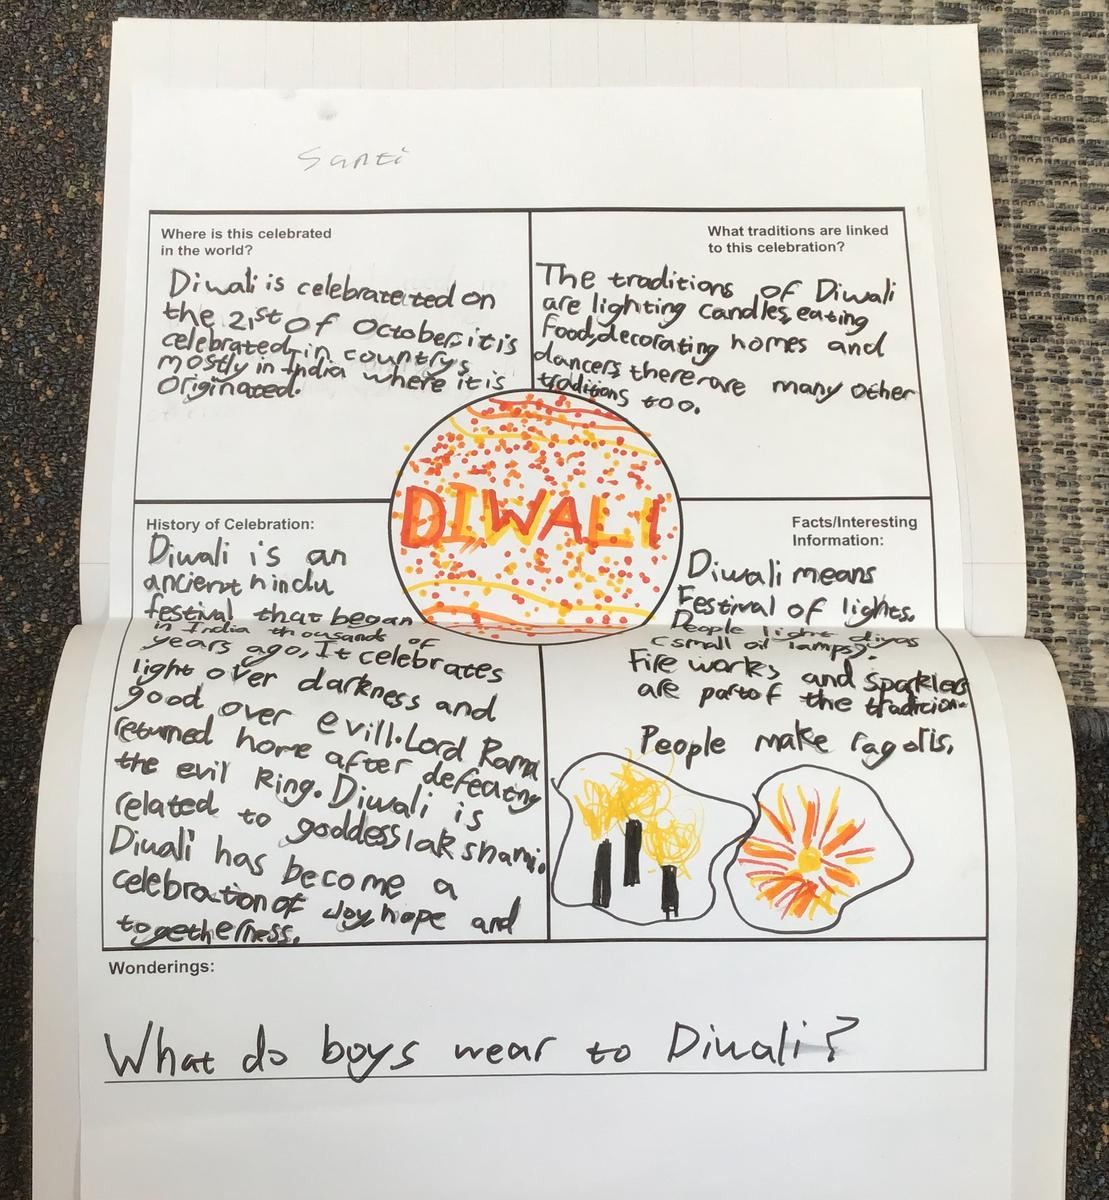 Santi
Where is this celebrated
in the world?
Diwali is celebrateated on
the 21st of October, it is
celebrated in countrys
mostly in India where it is
originated.
What traditions are linked
to this celebration?
The traditions of Diwali
are lighting candles, eating
food, decorating homes and
dancers there are many other
traditions too.
DIWALI
History of Celebration:
Diwali is an
ancient hindu
festival that began
in India thousands of
years ago, It celebrates
light over darkness and
good over evill. Lord Rama
returned home after defeating
the evil King. Diwali is
related to goddess lakshami.
Diwali has become a
celebration of Joy, hope and
togetherness.
Facts/Interesting
Information:
Diwali means
Festival of lights.
People light diyas
(small oil lamps).
Fire works and Sparklers
are part of the tradicion.
People make ragolis.
Wonderings:
What do boys wear to Diwali?